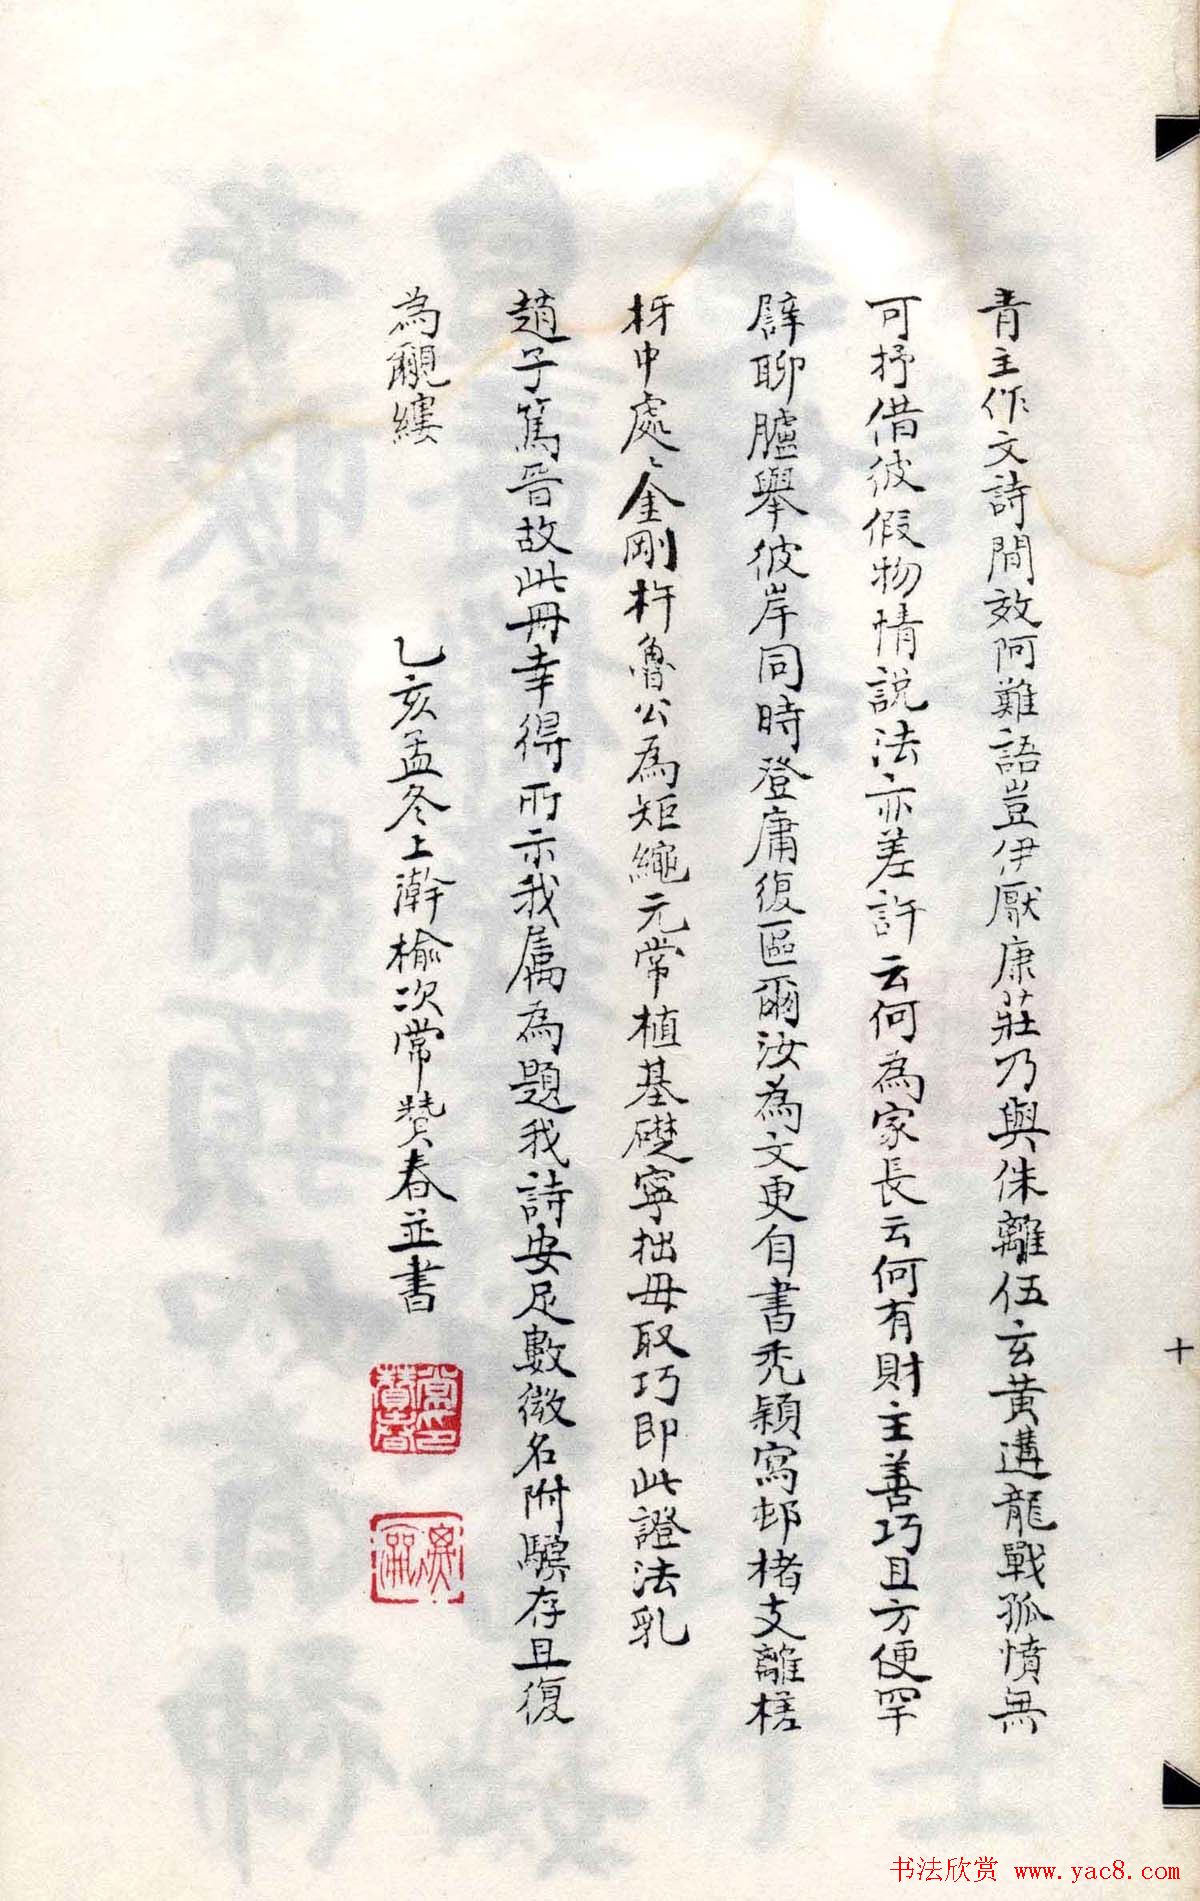 青主作文詩間效阿難語豈伊厭康莊乃與侏離伍玄黃遘龍戰孤憤無
可抒借彼假物情說法亦差許云何為家長云何有財主善巧且方便罕
辟聊臚舉彼岸同時登庸復區爾汝為文更自書禿穎寫邨楮支離槎
枒中處〻金剛杵魯公為矩繩元常植基礎寧拙毋取巧即此證法乳
趙子篤晉故此冊幸得所示我屬為題我詩安足數微名附驥存且復
為覼縷
乙亥孟冬上澣榆次常贊春並書
常贊春印
十
书法欣赏 www.yac8.com